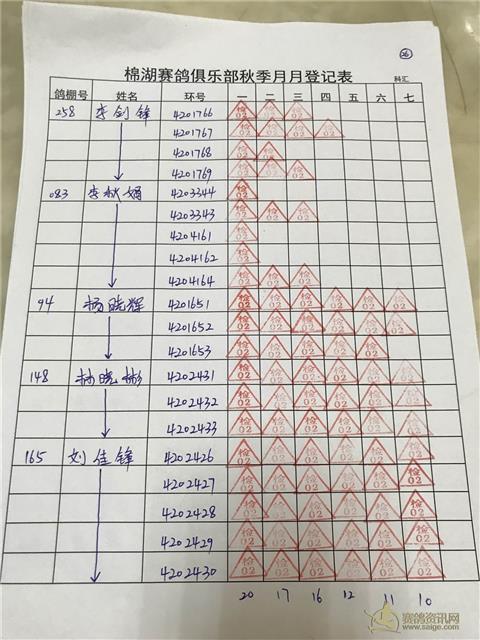 26
棉湖赛鸽俱乐部秋季月月登记表
科汇
鸽棚号 姓名 环号 一 二 三 四 五 六 七
258 李剑锋 4201766 检02 检02 检02
4201767 检02 检02 检02 检02
4201768 检02 检02
4201769 检02 检02 检02
083 李秋娟 4203344 检02
4203343 检02 检02 检02
4204161 检02
4204162 检02
4204164 检02 检02 检02
94 杨晓辉 4201651 检02 检02 检02 检02 检02 检02
4201652 检02 检02 检02 检02 检02 检02
4201653 检02 检02 检02 检02 检02
148 林晓彬 4202431 检02 检02 检02 检02 检02 检02
4202432 检02 检02 检02 检02 检02 检02
4202433 检02 检02 检02 检02 检02 检02
165 刘佳锋 4202426 检02 检02 检02 检02 检02 检02
4202427 检02 检02 检02 检02 检02 检02
4202428 检02 检02 检02 检02 检02 检02
4202429 检02 检02 检02 检02 检02 检02
4202430 检02 检02 检02 检02 检02 检02
20 17 16 12 11 10
赛鸽资讯网
www.saige.com